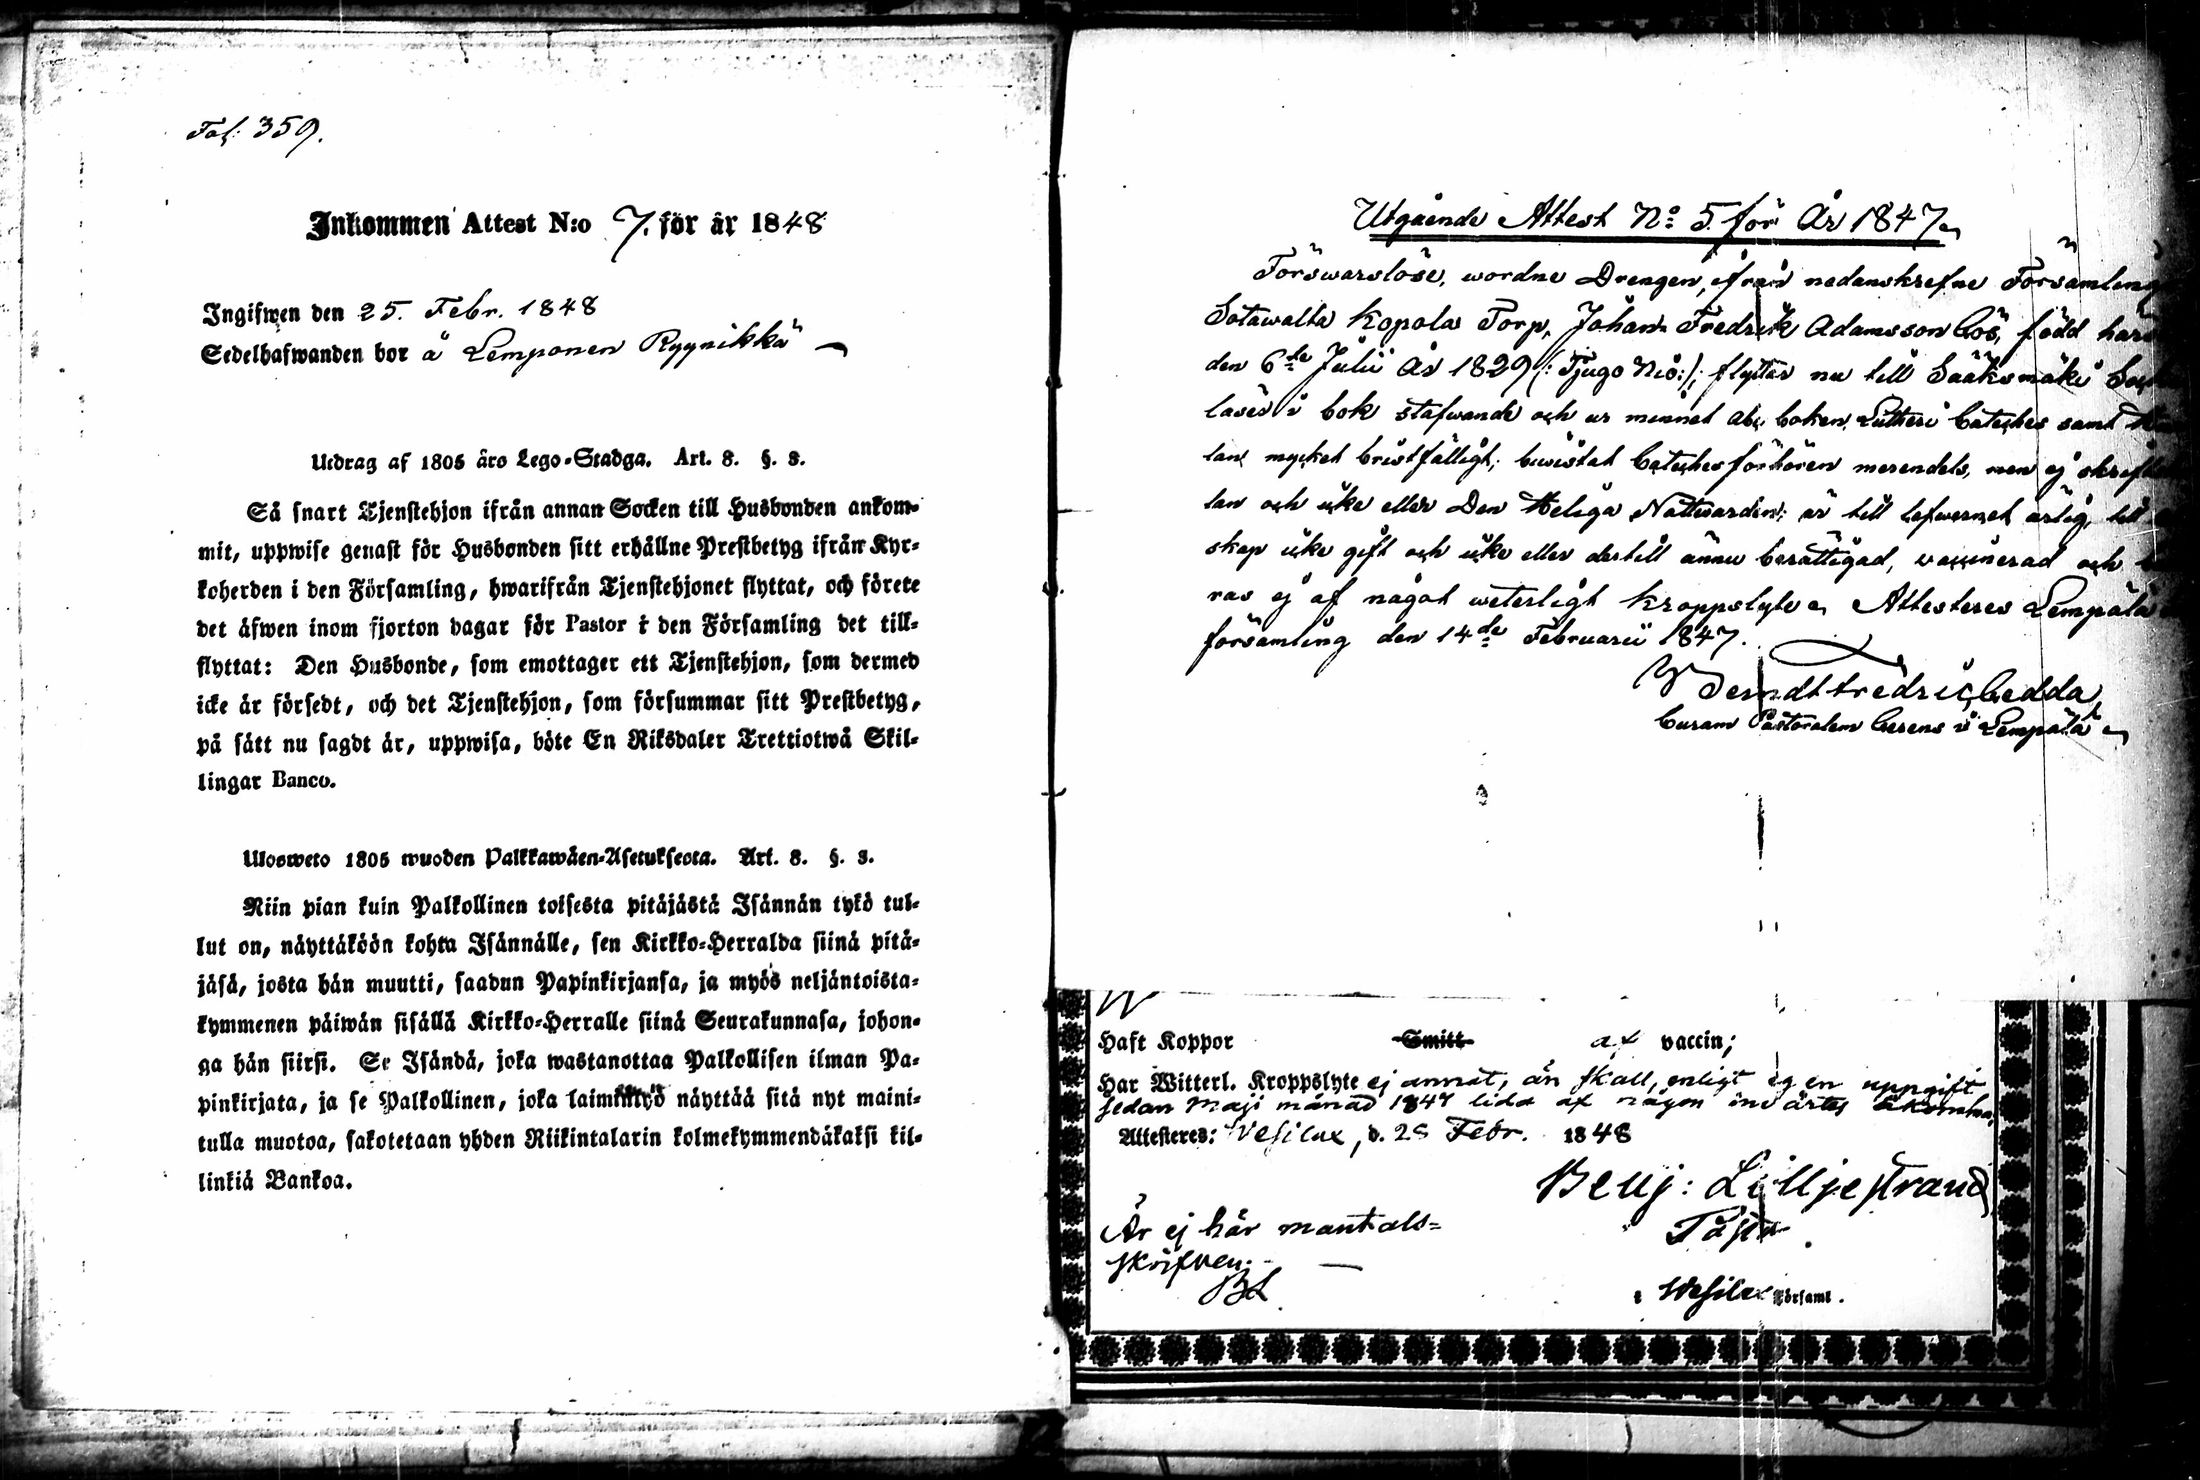 Fol: 359.
Inkommen Attest N:o 7. för år 1848
Ingifwen den 25. Febr. 1848
Sedelhafwanden bor å Lemponen Ryynikkä
Utdrag af 1805 års Lego-Stadga. Art. 8. §. 3.
Så snart Tjenstehjon ifrån annan Socken till Husbonden ankom-
mit, uppwise genast för Husbonden sitt erhållne Prestbetyg ifrån Kyr-
koherden i den Församling, hwarifrån Tjenstehjonet flyttat, och förete
det äfwen inom fjorton dagar för Pastor i den Församling det till-
flyttat: Den Husbonde, som emottager ett Tjenstehjon, som dermed
icke är försedt, och det Tjenstehjon, som försummar sitt Prestbetyg,
på sätt nu sagdt är, uppwisa, böte En Riksdaler Trettiotwå Skil-
lingar Banco.
Ulosweto 1805 wuoden Palkkawäen-Asetuksesta. Art. 8. §. 3.
Niin pian kuin Palkollinen toisesta pitäjästä Isännän tykö tul-
lut on, näyttäköön kohta Isännälle, sen Kirkko-Herralda siinä pitä-
jäsä, josta hän muutti, saadun Papinkirjansa, ja myös neljäntoista-
kymmenen päiwän sisällä Kirkko-Herralle siinä Seurakunnasa, johon-
ga hän siirsi. Se Isändä, joka wastanottaa Palkollisen ilman Pa-
pinkirjata, ja se Palkollinen, joka laiminlyö näyttää sitä nyt maini-
tulla muotoa, sakotetaan yhden Riikintalarin kolmekymmendäkaksi kil-
linkiä Bankoa.
Utgående Attest No 5. för År 1847
Förswarslöse, wordne Drengen, ifrån nedanskrefne Församling
Sotawalta Kopola Torp, Johan Fredrik Adamsson Cös, född här
den 6te Julii År 1829 (: Tjugo Nio:); flyttar nu till Sääksmäki
läser i bok stafwande och ur minnet abc boken, Lutheri Cateches samt
lan mycket bristfälligt; bewistat Catechesförhören merendels, men ej
lan och icke eller Den Heliga Nattwarden; är till lefwernet ärlig, till
skap icke gift och icke eller dertill ännu berättigad, vaccinerad och
ras ej af något weterligt kroppslyte. Attesteres Lempälä
församling den 14de Februarii 1847.
Berndt Fredric Cedda
Curam Pastoralem Gerens i Lempälä
Haft Koppor Smitt af vaccin;
Har Witterl. Kroppslyte ej annat, än skall, enligt egen uppgift
sedan Maji månad 1847 lida af någon invärtes åkomma,
Attesteres: Wesilax, d. 25 Febr. 1848
Benj: Lilljestrand
Är ej här mantals-
skrifven.
BL
i Wesilax Församl.